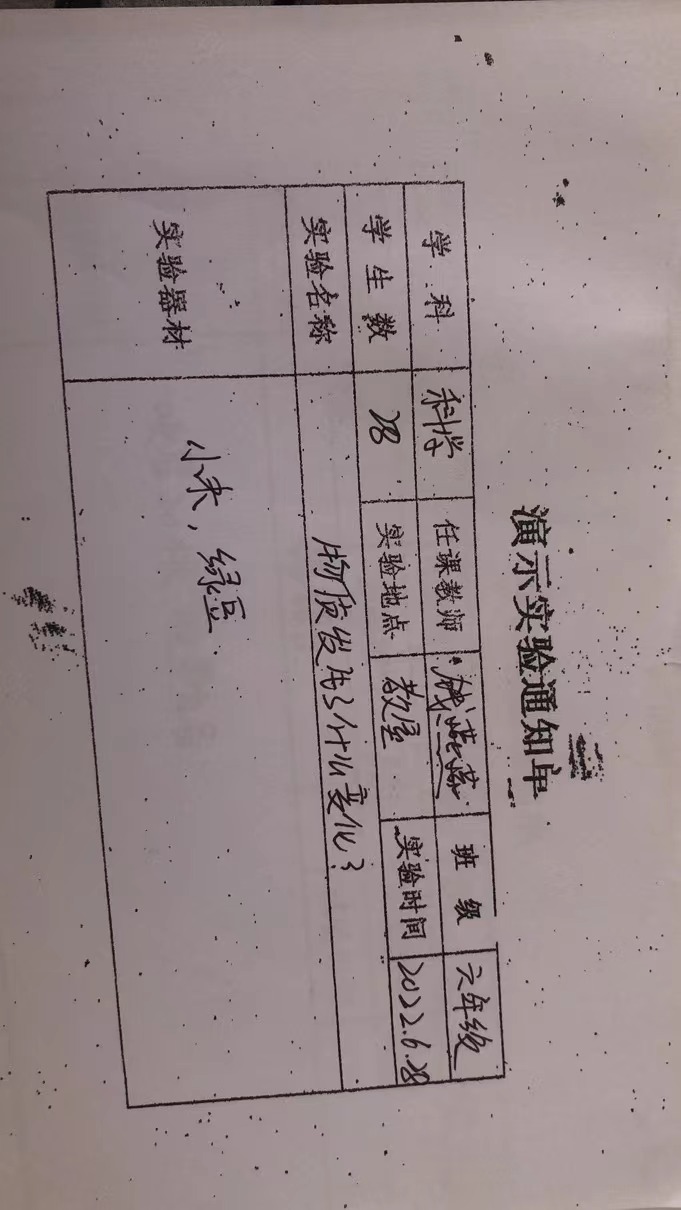 演示实验通知单
学 科 科学 任课教师 燕 班 级 六年级
学 生 数 28 实验地点 教室 实验时间 2022.6.28
实验名称 物质发生了什么变化?
实验器材 小米，绿豆